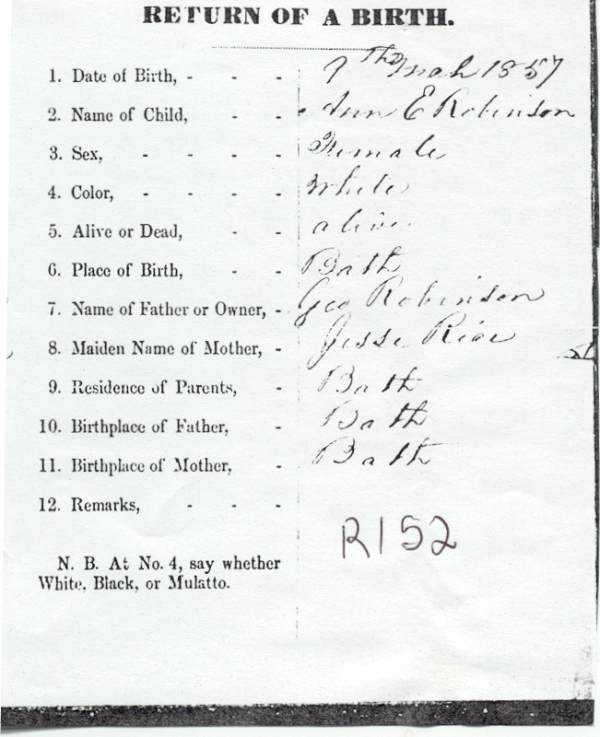 RETURN OF A BIRTH.
1. Date of Birth, - - - 7th Mah 1857
2. Name of Child, - - Ann E Robinson
3. Sex, - - - - Female
4. Color, - - - - White
5. Alive or Dead, - - alive
6. Place of Birth, - - Bath
7. Name of Father or Owner, - Geo Robinson
8. Maiden Name of Mother, - Jesse Rice
9. Residence of Parents, - Bath
10. Birthplace of Father, - Bath
11. Birthplace of Mother, - Bath
12. Remarks, - - -
R152
N. B. At No. 4, say whether
White, Black, or Mulatto.